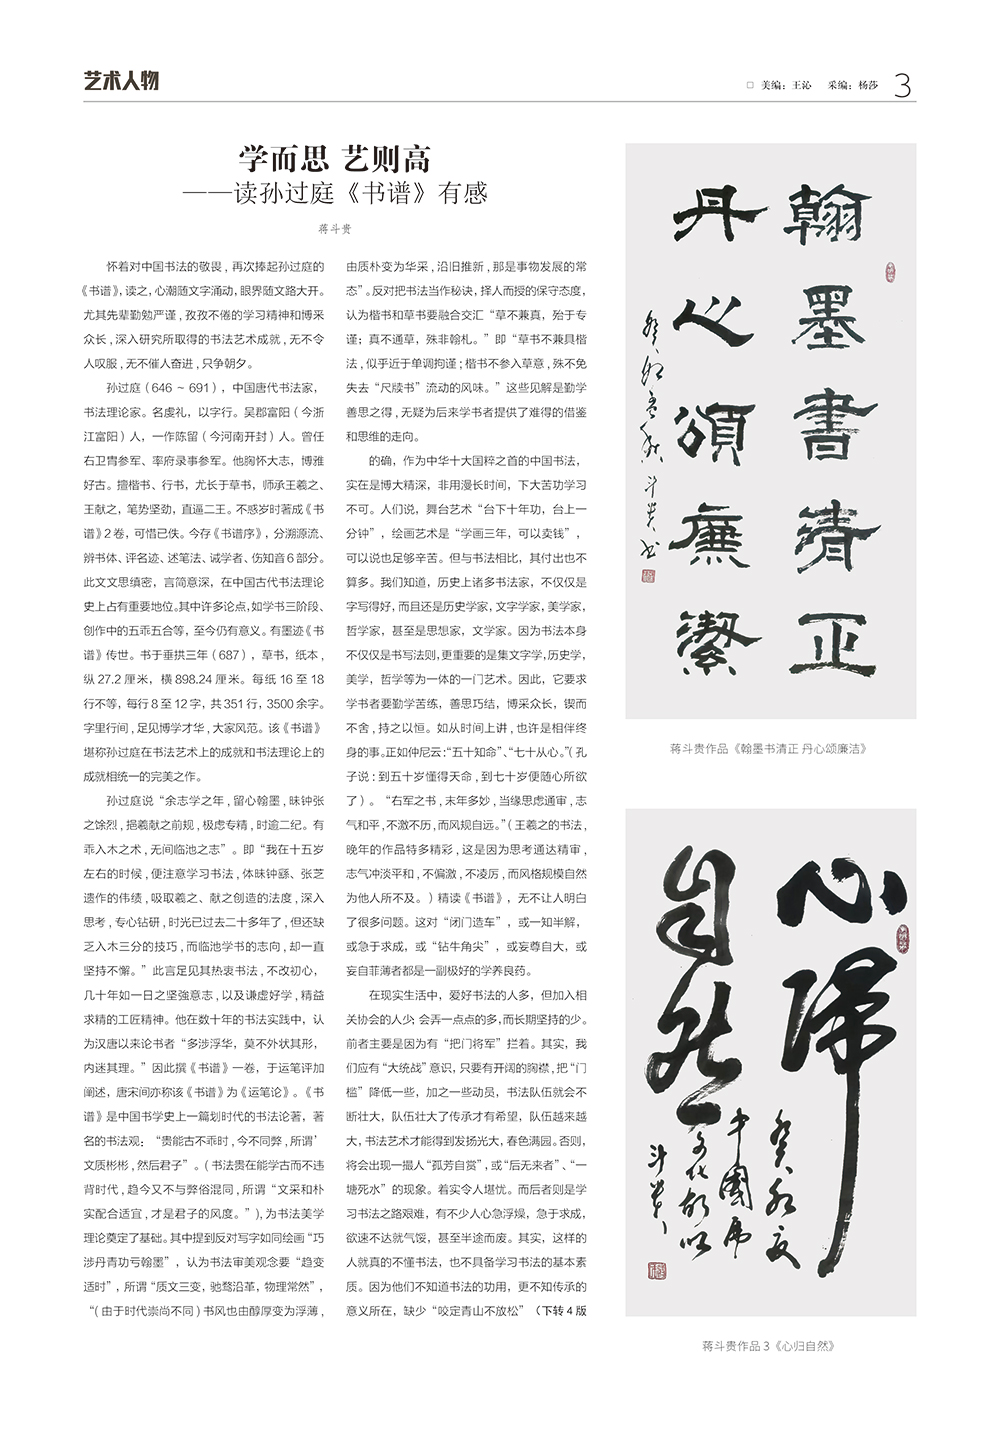 艺术人物
□ 美编：王沁 采编：杨莎 3
学而思 艺则高
——读孙过庭《书谱》有感
蒋斗贵
怀着对中国书法的敬畏，再次捧起孙过庭的
《书谱》，读之，心潮随文字涌动，眼界随文路大开。
尤其先辈勤勉严谨，孜孜不倦的学习精神和博采
众长，深入研究所取得的书法艺术成就，无不令
人叹服，无不催人奋进，只争朝夕。
孙过庭（646 ~ 691），中国唐代书法家，
书法理论家。名虔礼，以字行。吴郡富阳（今浙
江富阳）人，一作陈留（今河南开封）人。曾任
右卫胄参军、率府录事参军。他胸怀大志，博雅
好古。擅楷书、行书，尤长于草书，师承王羲之、
王献之，笔势坚劲，直逼二王。不惑岁时著成《书
谱》2卷，可惜已佚。今存《书谱序》，分溯源流、
辨书体、评名迹、述笔法、诫学者、伤知音6部分。
此文文思缜密，言简意深，在中国古代书法理论
史上占有重要地位。其中许多论点，如学书三阶段、
创作中的五乖五合等，至今仍有意义。有墨迹《书
谱》传世。书于垂拱三年（687），草书，纸本，
纵27.2厘米，横898.24厘米。每纸16至18
行不等，每行8至12字，共351行，3500余字。
字里行间，足见博学才华，大家风范。该《书谱》
堪称孙过庭在书法艺术上的成就和书法理论上的
成就相统一的完美之作。
孙过庭说“余志学之年，留心翰墨，昧钟张
之馀烈，挹羲献之前规，极虑专精，时逾二纪。有
乖入木之术，无间临池之志”。即“我在十五岁
左右的时候，便注意学习书法，体昧钟繇、张芝
遗作的伟绩，吸取羲之、献之创造的法度，深入
思考，专心钻研，时光已过去二十多年了，但还缺
乏入木三分的技巧，而临池学书的志向，却一直
坚持不懈。”此言足见其热衷书法，不改初心，
几十年如一日之坚強意志，以及谦虚好学，精益
求精的工匠精神。他在数十年的书法实践中，认
为汉唐以来论书者“多涉浮华，莫不外状其形，
内迷其理。”因此撰《书谱》一卷，于运笔详加
阐述，唐宋间亦称该《书谱》为《运笔论》。《书
谱》是中国书学史上一篇划时代的书法论著，著
名的书法观：“贵能古不乖时，今不同弊，所谓’
文质彬彬，然后君子”。（书法贵在能学古而不违
背时代，趋今又不与弊俗混同，所谓“文采和朴
实配合适宜，才是君子的风度。”），为书法美学
理论奠定了基础。其中提到反对写字如同绘画“巧
涉丹青功亏翰墨”，认为书法审美观念要“趋变
适时”，所谓“质文三变，驰骛沿革，物理常然”，
“（由于时代崇尚不同）书风也由醇厚变为浮薄，
由质朴变为华采，沿旧推新，那是事物发展的常
态”。反对把书法当作秘诀，择人而授的保守态度，
认为楷书和草书要融合交汇“草不兼真，殆于专
谨；真不通草，殊非翰札。”即“草书不兼具楷
法，似乎近于单调拘谨；楷书不参入草意，殊不免
失去“尺牍书”流动的风味。”这些见解是勤学
善思之得，无疑为后来学书者提供了难得的借鉴
和思维的走向。
的确，作为中华十大国粹之首的中国书法，
实在是博大精深，非用漫长时间，下大苦功学习
不可。人们说，舞台艺术“台下十年功，台上一
分钟”，绘画艺术是“学画三年，可以卖钱”，
可以说也足够辛苦。但与书法相比，其付出也不
算多。我们知道，历史上诸多书法家，不仅仅是
字写得好，而且还是历史学家，文字学家，美学家，
哲学家，甚至是思想家，文学家。因为书法本身
不仅仅是书写法则，更重要的是集文字学，历史学，
美学，哲学等为一体的一门艺术。因此，它要求
学书者要勤学苦练，善思巧结，博采众长，锲而
不舍，持之以恒。如从时间上讲，也许是相伴终
身的事。正如仲尼云：“五十知命”、“七十从心。”（孔
子说：到五十岁懂得天命，到七十岁便随心所欲
了）。“右军之书，末年多妙，当缘思虑通审，志
气和平，不激不历，而风规自远。”（王羲之的书法，
晚年的作品特多精彩，这是因为思考通达精审，
志气冲淡平和，不偏激，不凌厉，而风格规模自然
为他人所不及。）精读《书谱》，无不让人明白
了很多问题。这对“闭门造车”，或一知半解，
或急于求成，或“钻牛角尖”，或妄尊自大，或
妄自菲薄者都是一副极好的学养良药。
在现实生活中，爱好书法的人多，但加入相
关协会的人少；会弄一点点的多，而长期坚持的少。
前者主要是因为有“把门将军”拦着。其实，我
们应有“大统战”意识，只要有开阔的胸襟，把“门
槛”降低一些，加之一些动员，书法队伍就会不
断壮大，队伍壮大了传承才有希望，队伍越来越
大，书法艺术才能得到发扬光大，春色满园。否则，
将会出现一撮人“孤芳自赏”，或“后无来者”、“一
塘死水”的现象。着实令人堪忧。而后者则是学
习书法之路艰难，有不少人心急浮燥，急于求成，
欲速不达就气馁，甚至半途而废。其实，这样的
人就真的不懂书法，也不具备学习书法的基本素
质。因为他们不知道书法的功用，更不知传承的
意义所在，缺少“咬定青山不放松”（下转4版
翰墨書清正
丹心頌廉潔
癸卯 斗贵书
蒋斗贵作品《翰墨书清正 丹心颂廉洁》
心归
自然
癸卯夏
中國
斗贵
蒋斗贵作品3《心归自然》